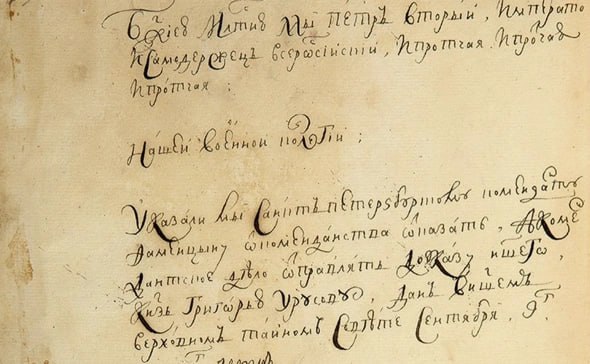 Бжиею Млтию Мы Петръ вторый, Императо
И Самодержецъ всеросиiскiй, И протчая И протчая
И протчая:
Нашей военной колегiи:
Указали мы Санктъ петерз бурскому коменданту
от комендантства отказать, А коме
дантское дѣло отправлять до указу нашего,
Кнзь Григорью Урусову, Данъ В нашемъ
верховномъ тайномъ Советѣ Сентября, 9г